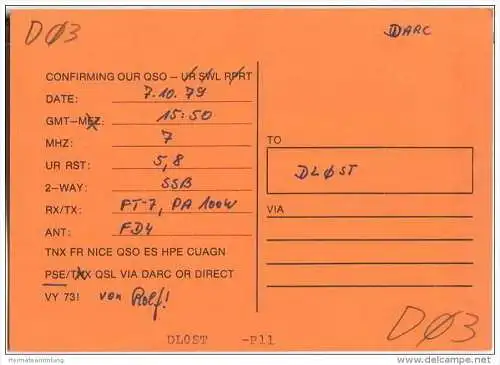 DØ3
DARC
CONFIRMING OUR QSO – UR SWL RPRT
DATE: 7.10.79
GMT–MEZ: 15:50
MHZ: 7
UR RST: 5,8
2-WAY: SSB
RX/TX: FT-7, PA 100W
ANT: FD4
TNX FR NICE QSO ES HPE CUAGN
PSE/TNX QSL VIA DARC OR DIRECT
VY 73! von Rolf!
TO
DLØST
VIA
DØ3
DL0ST -P11
Heimatsammlung
www.delcampe.net